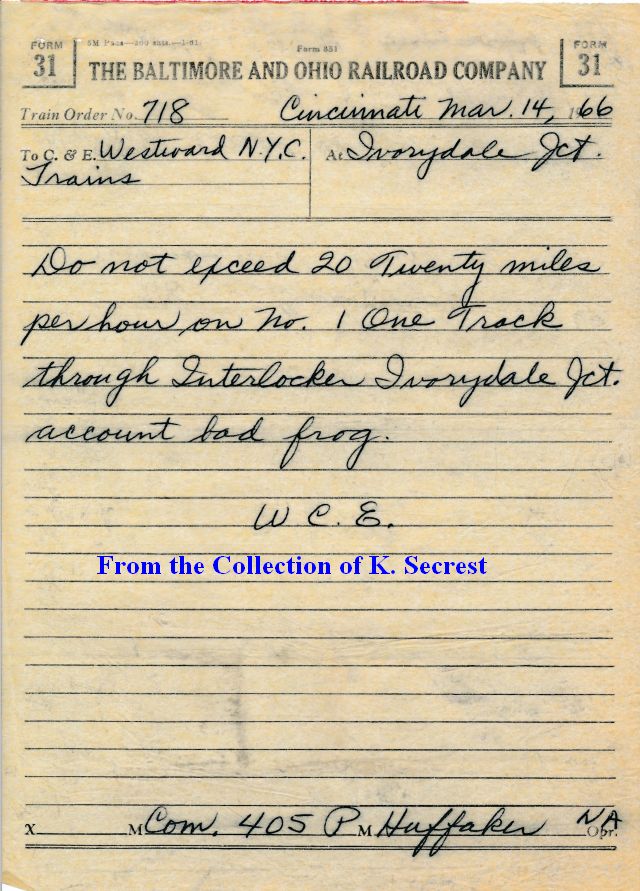 FORM 31
Form 831
FORM 31
THE BALTIMORE AND OHIO RAILROAD COMPANY
Train Order No. 718 Cincinnati Mar. 14, 1966
To C. & E. Westward N.Y.C. At Ivorydale Jct.
Trains
Do not exceed 20 Twenty miles
per hour on No. 1 One Track
through Interlocker Ivorydale Jct.
account bad frog.
W C. E.
From the Collection of K. Secrest
X M Com. 405 P M Huffaker NA Opr.